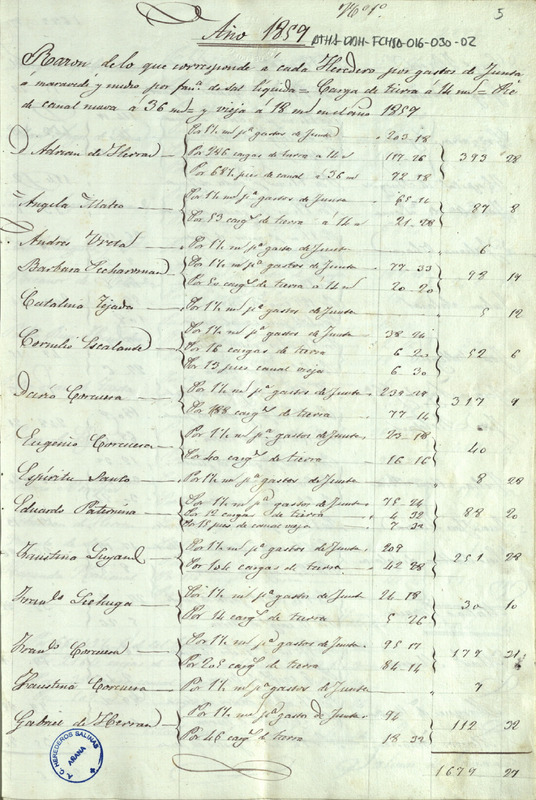 Nº 1º
5
Año 1857
ATHA-DAH-FCHSA-016-030-02
Razon de lo que corresponde á cada Heredero por gastos de Junta
á maravedí y medio por fanª de sal líquida = Carga de tierra á 14 ms = Pie
de canal nueva á 36 ms y vieja á 18 ms en el año 1857
Por 1½ ms pª gastos de Junta 203 18
Adrian de Herran Por 246 cargas de tierra a 14 ms 393 28
Por 68½ pies de canal á 36 ms 72 18
Por 1½ ms pª gastos de Junta 65 14
Angela Mateo 87 8
Por 53 cargs de tierra a 14 ms 21 28
Andres Ureta Por 1½ ms pª gastos de Junta 6
Por 1½ ms pª gastos de Junta 77 33
Barbara 98 19
Por 50 cargs de tierra á 14 ms 20 20
Catalina Tejada Por 1½ ms pª gastos de Junta 5 12
Por 1½ ms pª gastos de Junta 38 24
Cornelio Escalante Por 16 cargas de tierra 6 20 52 6
Por 13 pies canal vieja 6 30
Por 1½ ms pª gastos de Junta
Dario Corcuera 317
Por 188 cargs de tierra 77 14
Por 1½ ms pª gastos de Junta 23 18
Eugenio Corcuera 40
Por 40 cargs de tierra 16 16
Espíritu Santo Por 1½ ms pª gastos de Junta 8 28
Por 1½ ms pª gastos de Junta 75 24
Eduardo Por 12 cargas de tierra 4 32 88 20
Por 15 pies de canal vieja 7 32
Por 1½ ms pª gastos de Junta 209
Faustino 251 28
Por 104 cargas de tierra 42 28
Por 1½ ms pª gastos de Junta 24 18
Franco Lechuga 30 10
Por 14 cargs de tierra 5 26
Por 1½ ms pª gastos de Junta 95 17
Franco Corcuera 179
Por 205 cargs de tierra 84 14
Faustina Corcuera Por 1½ ms pª gastos de Junta 7
Por 1½ ms pª gastos de Junta 94
Gabriel de Herran 112 32
Por 46 cargs de tierra 18 32
1679 27
T. C. HEREDEROS SALINAS
AÑANA